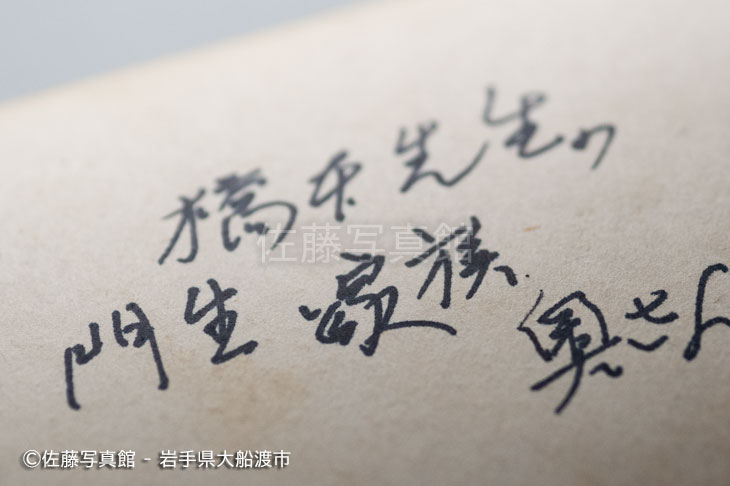 橋本先生の
門生 家族、奥さん
佐藤写真館
©佐藤写真館 - 岩手県大船渡市